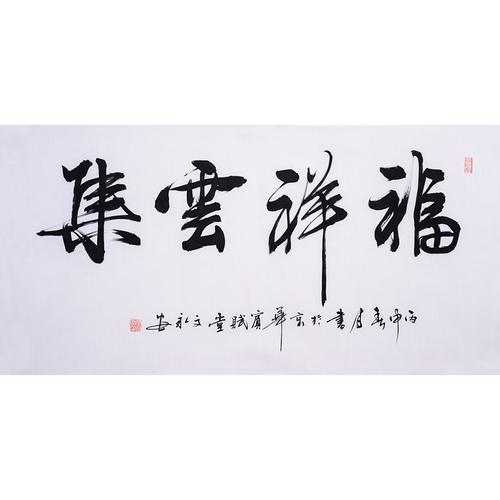 福祥雲集
丙申春月書於京華賦堂文永安